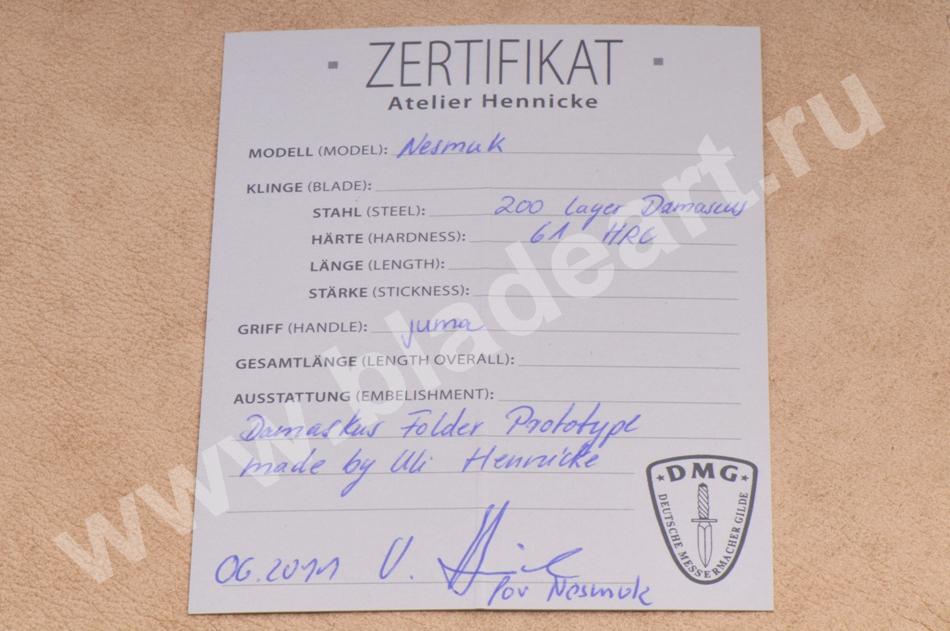 ▪ ZERTIFIKAT ▪
Atelier Hennicke
MODELL (MODEL): Nesmuk
KLINGE (BLADE):
STAHL (STEEL): 200 Lager Damascus
HÄRTE (HARDNESS): 61 HRC
LÄNGE (LENGTH):
STÄRKE (STICKNESS):
GRIFF (HANDLE): juma
GESAMTLÄNGE (LENGTH OVERALL):
AUSSTATTUNG (EMBELISHMENT):
Damaskus Folder Prototype
made by Uli Hennicke
DMG
DEUTSCHE MESSERMACHER GILDE
06.2011 U.
for Nesmuk
www.bladeart.ru